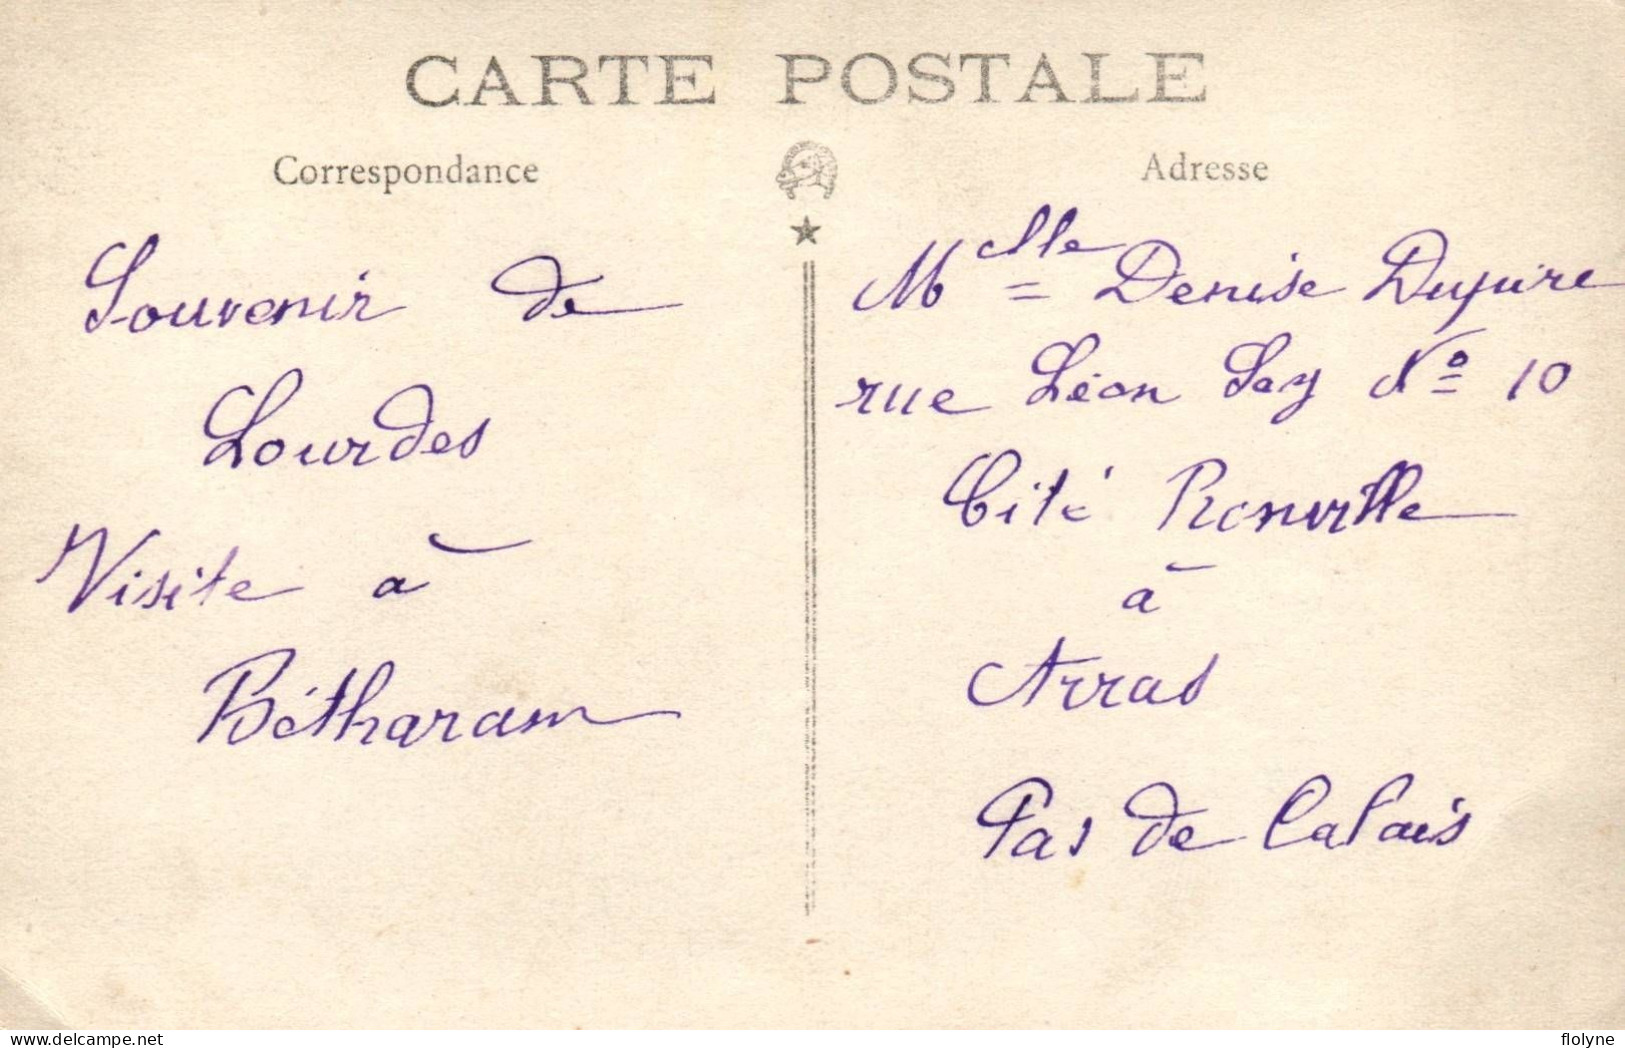 CARTE POSTALE
Correspondance
Souvenir de
Lourdes
Visite à
Bétharam
Adresse
Melle Denise Dupire
rue Léon Say No 10
Cité Ronville
à
Arras
Pas de Calais
delcampe.net
flolyne